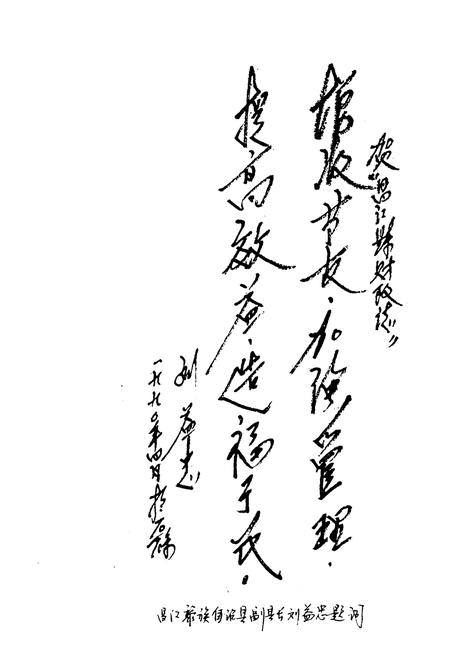 贺《昌江县财政志》
增收节支,加强管理.
提高效益,造福于民.
刘益忠
一九九〇年四月于石碌
昌江黎族自治县副县长刘益忠题词